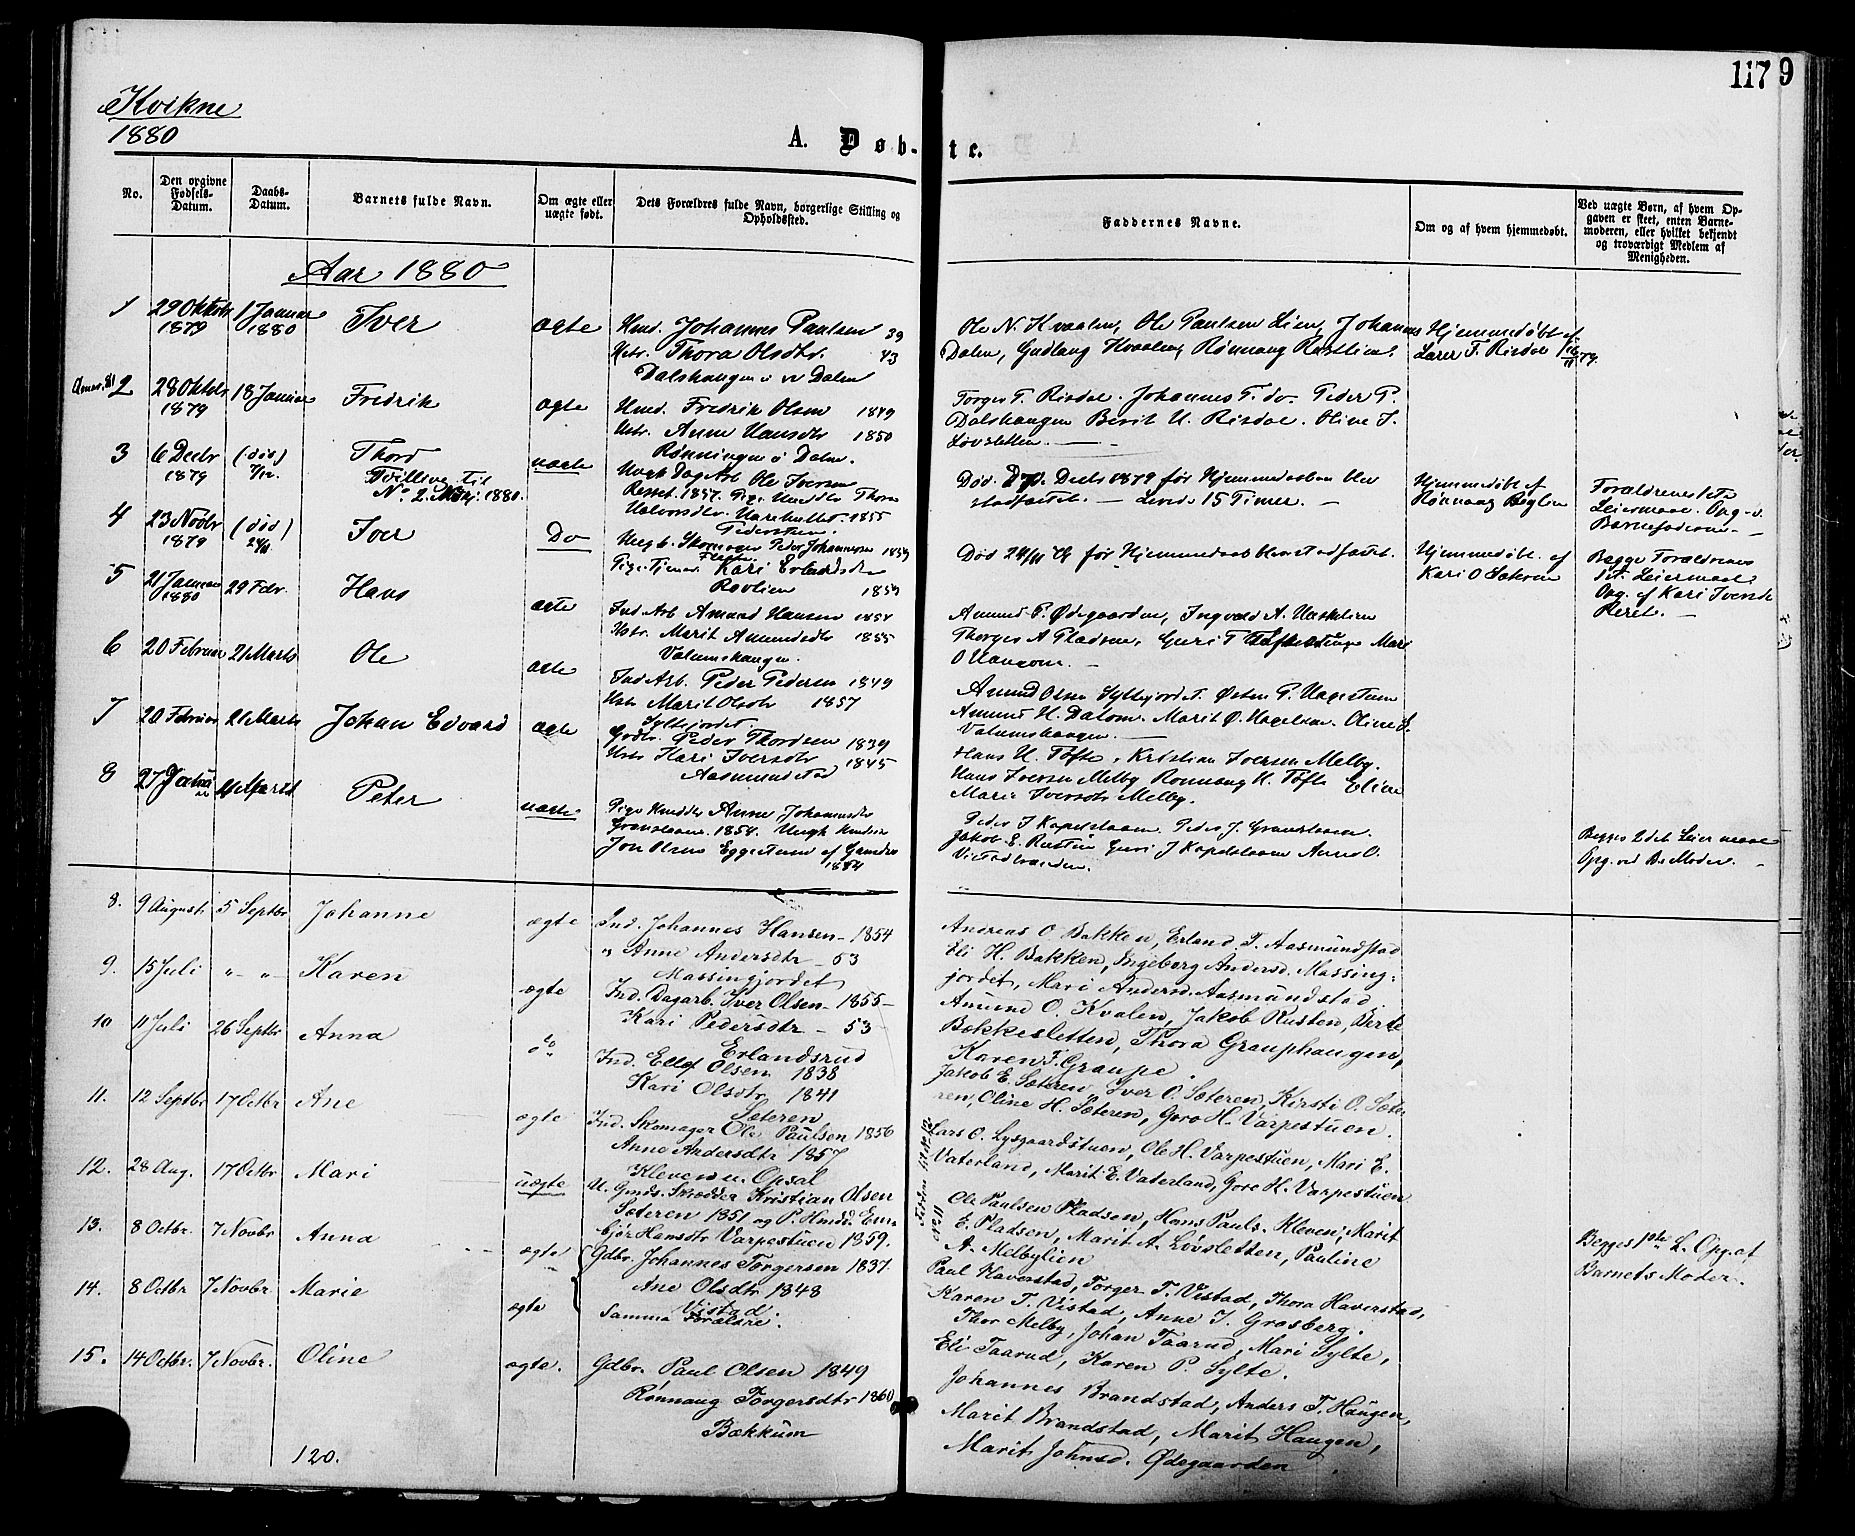 117 9
Kvikne
1880
A. Døb-
te.
No.
Den opgivne Fødsels-Datum.
Daabs-Datum.
Barnets fulde Navn.
Om ægte eller uægte født.
Dets Forældres fulde Navn, borgerlige Stilling og Opholdssted.
Faddernes Navne.
Om og af hvem hjemmedøbt.
Ved uægte Børn, af hvem Op-
gaven er skeet, enten Barne-
moderen, eller hvilket bekjendt
og troværdigt Medlem af
Menigheden.
Aar 1880
1 29 Oktobr 1879 1 Januar 1880 Iver ægte Hmd. Johannes Paulsen 39
Hstr. Thora Olsdtr. 43
Dalshaugen i Dalen
Ole N. Kvaalen, Ole Paulsen Lien, Johannes
Dalen, Gudlaug Kvaalen, Rønnaug
Hjemmedøbt af
Lærer T. Risdal
2 28 Oktobr 1879 18 Januar Fredrik ægte Hmd. Fredrik Olsen 1849
Hstr. Anne Hansdtr 1850
Rønningen i Dalen.
Torger T. Risdal. Johannes T. do. Peder P.
Dalshaugen Berit H. Risdal. Oline I.
Løvsletten.
3 6 Decbr 1879 (død) 7/12. Thord
Tvilling til
No 2 1880.
uægte Ungk Dag Arb Ole Iversen
1857. Pige Thora
Halvorsdtr. 1855
Død D. 7de Decbr 1879 før Hjemmedaaben blev
stadfæstet. — Levede 15 Timer. —
Hjemmedøbt af
Rønnaug Bøglien
Forældrenes 1ste
Leiermaal. Opg. v.
Barnefaderen
4 23 Novbr 1879 (død) 24/11 Iver Do Ungk. Skomager Peder Johannesen 1859
Pige Tjener Kari Erlandsdtr
1859
Død 24/11 79 før Hjemmedaab blev stadfæstet.
Hjemmedøbt af
Kari O Sæteren
Begge Forældrenes
1ste Leiermaal
Opg. af Kari Iversdtr
5 21 Januar 1880 29 Febr. Hans ægte Ind Arb Amund Hansen 1854
Hstr. Marit Amundsdtr 1855
Volumshaugen.
Amund P. Ødegaarden, Ingvald A.
Thorger A Pladsen, Guri T Mari
O Haugom. —
6 20 Februar 21 Marts Ole ægte Ind Arb. Peder Pedersen 1849
Hstr Marit Olsdtr 1857
Syltejordet.
Amund Olsen Syltejordet. Østen P.
Amund H. Dalom. Marit Ø. Oline E.
Volumshaugen.
7 20 Februar 21 Marts Johan Edvard ægte Gdbr. Peder Thordsen 1839
Hstr Kari Iversdtr 1845
Aasmundstad
Hans H. Tofte, Kristian Iversen Melby.
Hans Iversen Melby Rønnaug K. Tofte Eline
Marie Iversdtr Melby.
8 27 Peter uægte Pige Anne Johannesdtr
1854. Ungk
Jon Olsen Eggestuen 1854
Peder J Kapelslaaen. Peder J.
Jakob E. Rusten Guri J Kapelslaaen Anne O.
Begges 2det Leiermaal
Opg. ved B. Moder. —
8. 9 August 5 Septbr Johanne ægte Ind. Johannes Hansen - 1854
" Anne Andersdtr - 53
Massingjordet
Andreas O Bakken, Erland T. Aasmundstad
Eli H. Bakken, Ingeborg Andersd. Massing-
jordet, Mari Andersd. Aasmundstad
9. 15 Juli " - " - Karen ægte Ind. Dagarb. Iver Olsen - 1855 -
Kari Pedersdtr - 53 -
Erlandsrud
Amund O. Kvalen, Jakob Rusten, Berte
Bakkesletten, Thora Grauphaugen,
Karen J. Graupe.
10 11 Juli 26 Septbr Anna do Ind. Ellef Olsen 1838
Kari Olsdtr 1841
Sæteren
Jakob E. Sæteren, Iver O. Sæteren, Kirsti O. Sæte-
ren, Oline H. Sæteren, Goro H. Varpestuen.
11. 12 Septbr 17 Octbr Ane ægte Ind. Skomager Ole Paulsen 1856
Anne Andersdtr 1857
Kleven u. Opsal
Lars O. Lysgaardstuen, Ole H. Varpestuen, Mari E.
Vaterland, Marit E. Vaterland, Goro H. Varpestuen
12. 28 Aug. 17 Octbr Mari uægte U. Gmds. Skrædder Kristian Olsen
Sæteren 1851 og P. Hmds. Em-
bjør Hansdtr Varpestuen 1859.
Ole Paulsen Pladsen, Hans Pauls. Kleven, Marit
E. Pladsen, Marit A. Løvsletten, Pauline
A. Melbylien
Begges 1ste L. Opg. af
Barnets Moder.
13. 8 Octbr. 7 Novbr Anna ægte Gdbr. Johannes Torgersen 1837.
Ane Olsdtr 1848
Vistad.
Paul Haverstad, Torger T. Vistad, Thora Haverstad,
Karen T. Vistad, Anne I. Grosberg.
14. 8 Octbr 7 Novbr Marie ægte Samma Forældre.
Thor Melby, Johan Taarud, Mari Sylte,
Eli Taarud, Karen P. Sylte.
15. 14 Octbr. 7 Novbr. Oline ægte. Gdbr. Paul Olsen 1849
Rønnaug Torgersdtr 1860
Bækkum
Johannes Brandstad, Anders T. Haugen,
Marit Brandstad, Marit Haugen,
Marit Johnsd. Ødegaarden
120.